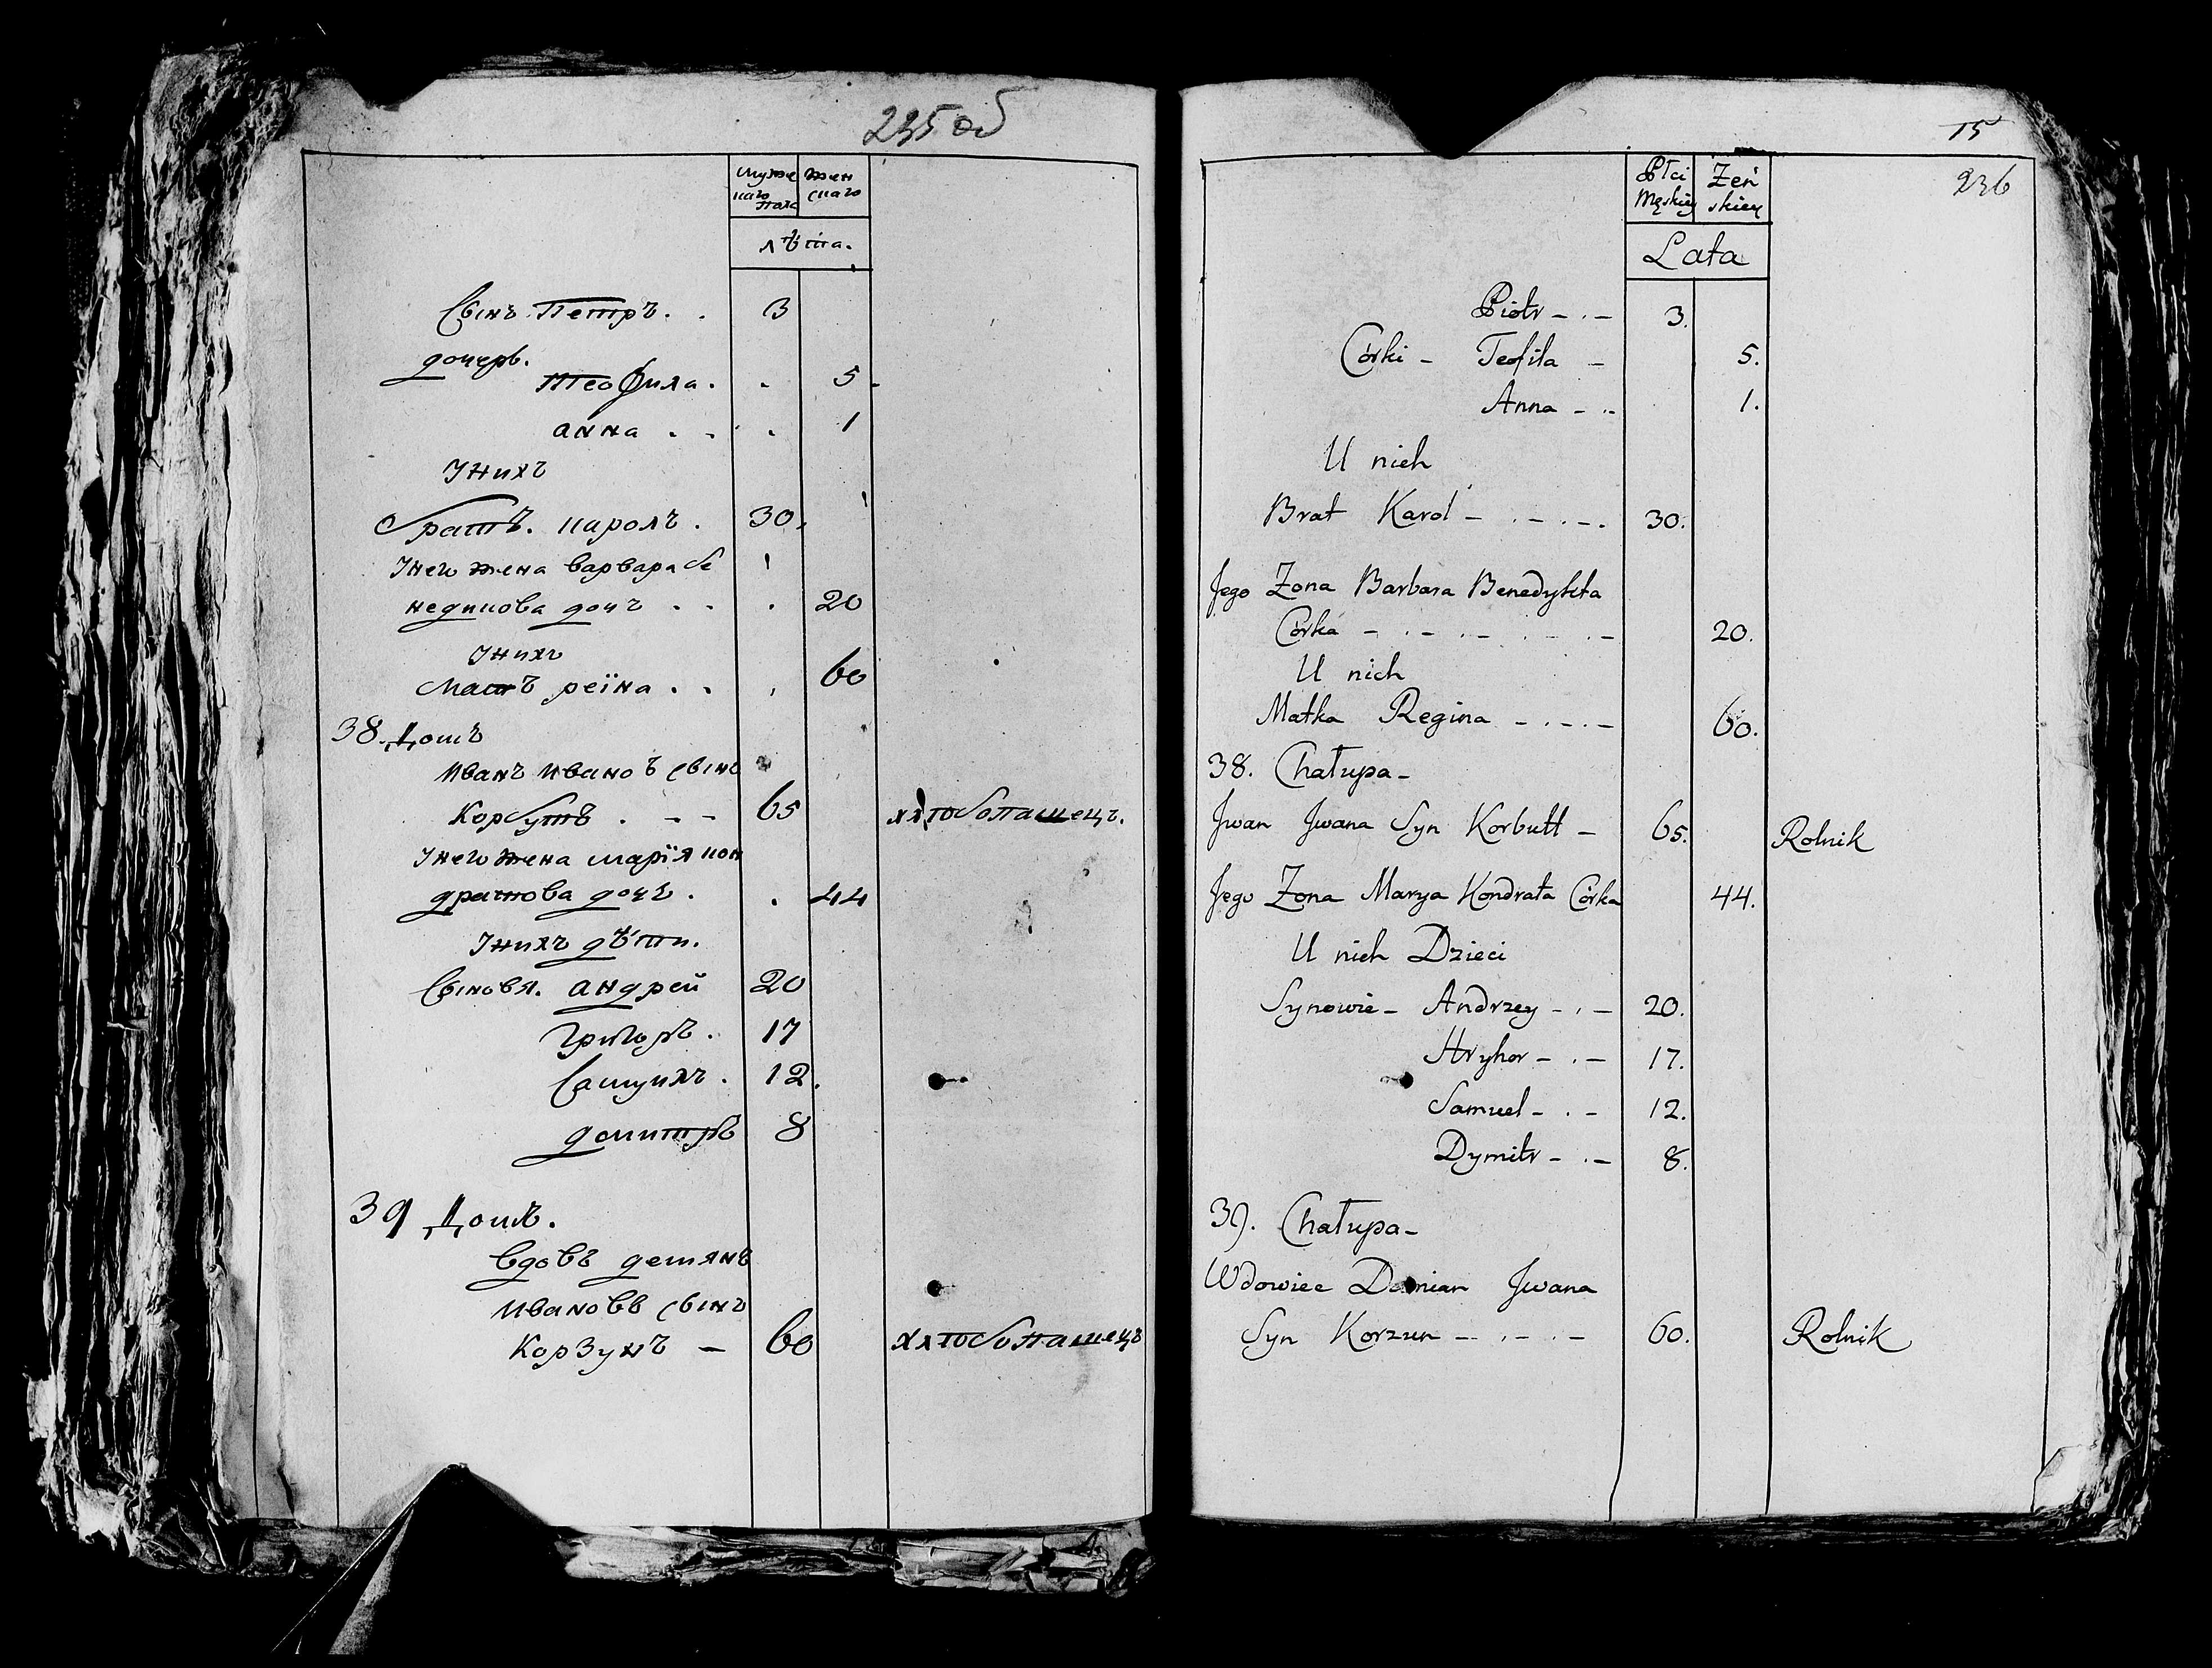 235 об
Мужескаго пола
Женскаго
лѣта.
Сынъ Петръ. . 3
дочерь.
Теофила. . 5
анна . . . 1
Унихъ
братъ. каролъ . 30.
Унего жена варвара бе
недикова дочъ . . . 20
Унихъ
матъ реїна . . , 60
38. Домъ
Иванъ Ивановъ сынъ
Корбутъ . - - 65 хлѣбопашецъ.
Унего жена марїя кон
дратова дочъ . . 44
Унихъ дѣти.
Сыновя. андрей 20
григоръ . 17
Самуилъ . 12.
домитръ 8
39 Домъ.
Вдовъ демянъ
Ивановъ сынъ
Корзунъ - 60 хлѣбопашецъ
15
236
Płci Męskiey
Żeńskiey
Lata
Piotr - . - 3.
Córki - Teofila - 5.
Anna - . - 1.
U nich
Brat Karol - . - . - . 30.
Jego Żona Barbara Benedykta
Córka - . - . - . - . - 20.
U nich
Matka Regina - . - . - 60.
38. Chałupa -
Jwan Jwana Syn Korbutt - 65. Rolnik
Jego Żona Marya Kondrata Córka 44.
U nich Dzieci
Synowie - Andrzey - . - 20.
Hryhor - . - 17.
Samuel - . - 12.
Dymitr - . - 8.
39. Chałupa -
Wdowiec Damian Jwana
Syn Korzun - . - . - 60. Rolnik